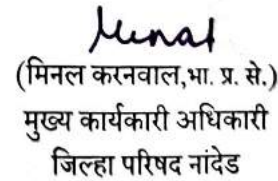 Minal
(मिनल करनवाल,भा. प्र. से.)
मुख्य कार्यकारी अधिकारी
जिल्हा परिषद नांदेड